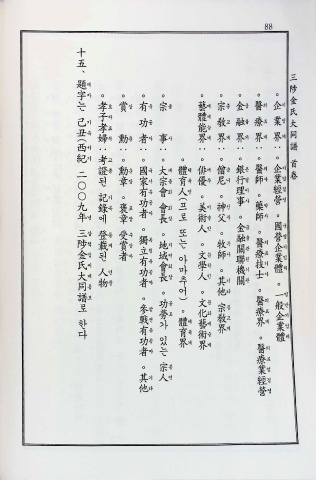 三陟金氏大同譜 首卷
88
◦企業界 : 企業經營 ◦ 國營企業體 ◦ 一般企業體
◦醫療界 : 醫師 ◦ 藥師 ◦ 醫療技士 ◦ 醫療界 ◦ 醫療業經營
◦金融界 : 銀行理事 ◦ 金融關聯機關
◦宗敎界 : 僧尼 ◦ 神父 ◦ 牧師 ◦ 其他 宗敎界
◦藝體能界 : 俳優 ◦ 美術人 ◦ 文學人 ◦ 文化藝術界
體育人(프로 또는 아마추어) ◦ 體育界
◦宗事 : 大宗會 會長 ◦ 地域會長 ◦ 功勞가 있는 宗人
◦有功者 : 國家有功者 ◦ 獨立有功者 ◦ 參戰有功者 ◦ 其他
◦賞勳 : 勳章 ◦ 褒章 受賞者
◦孝子孝婦 : 考證된 記錄에 登載된 人物
十五、題字는 己丑(西紀 二〇〇九年 三陟金氏大同譜로 한다